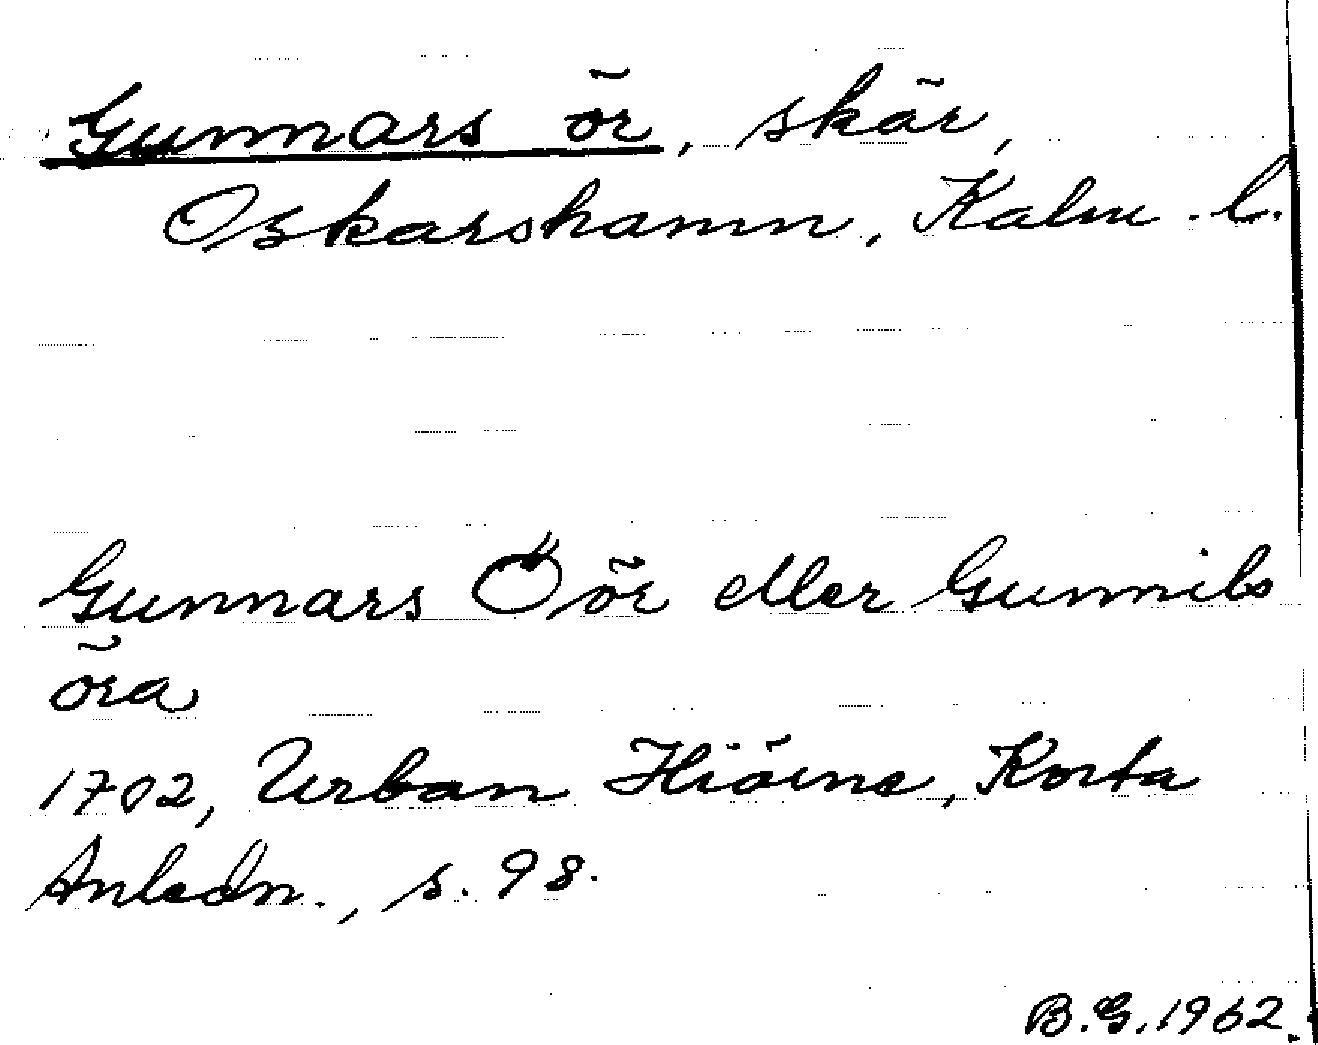 Gunnars ör, skär,
Oskarshamn, Kalm. l.
Gunnars Öör eller Gunnils
öra
1702, Urban Hiärne, Korta
Anledn., s. 98.
B.G. 1962.